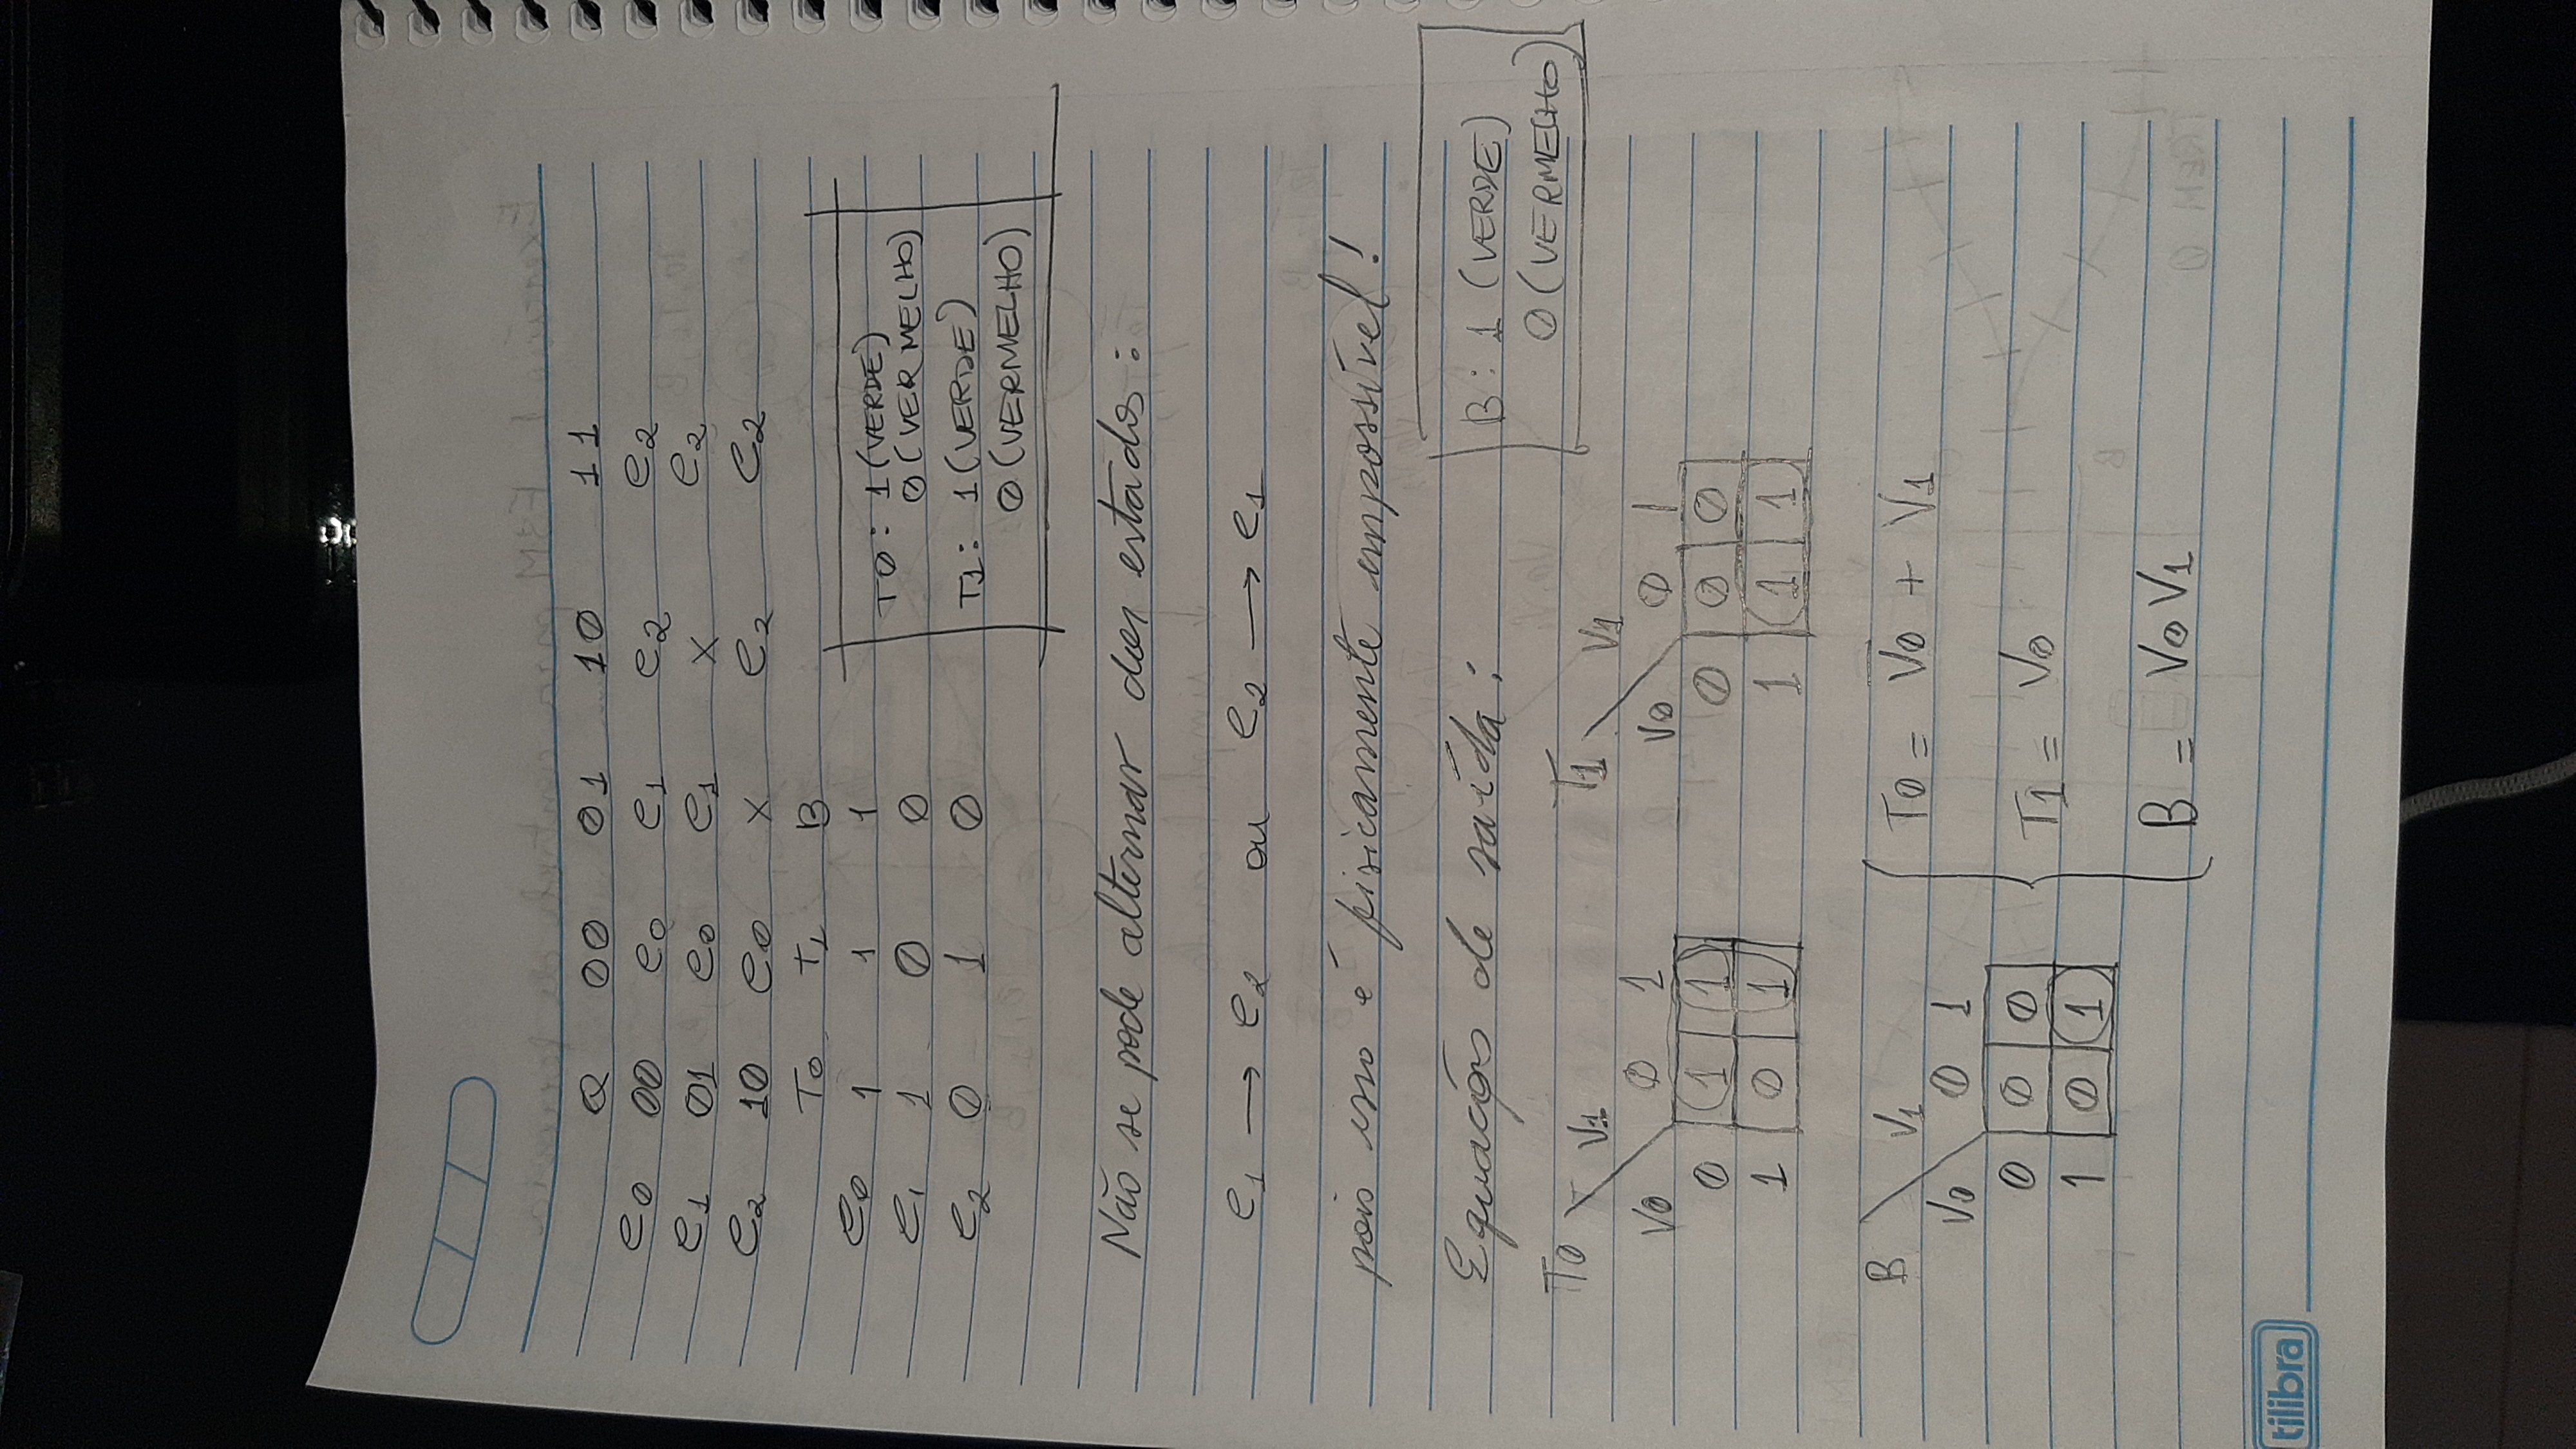 Q 00 01 10 11
e0 00 e0 e1 e2 e2
e1 01 e0 e1 x e2
e2 10 e0 x e2 e2
T0 T1 B
e0 1 1 1
e1 1 0 0
e2 0 1 0
T0: 1 (VERDE)
0 (VERMELHO)
T1: 1 (VERDE)
0 (VERMELHO)
Não se pode alternar dos estados:
e1 → e2 ou e2 → e1
pois isso é fisicamente impossível!
Equações de saída:
B: 1 (VERDE)
0 (VERMELHO)
T0 V1
V0 0 1
0 1 1
1 0 1
T1 V1
V0 0 1
0 0 0
1 1 1
B V1
V0 0 1
0 0 0
1 0 1
T0 = V̅0 + V1
T1 = V0
B = V0 V1
tilibra